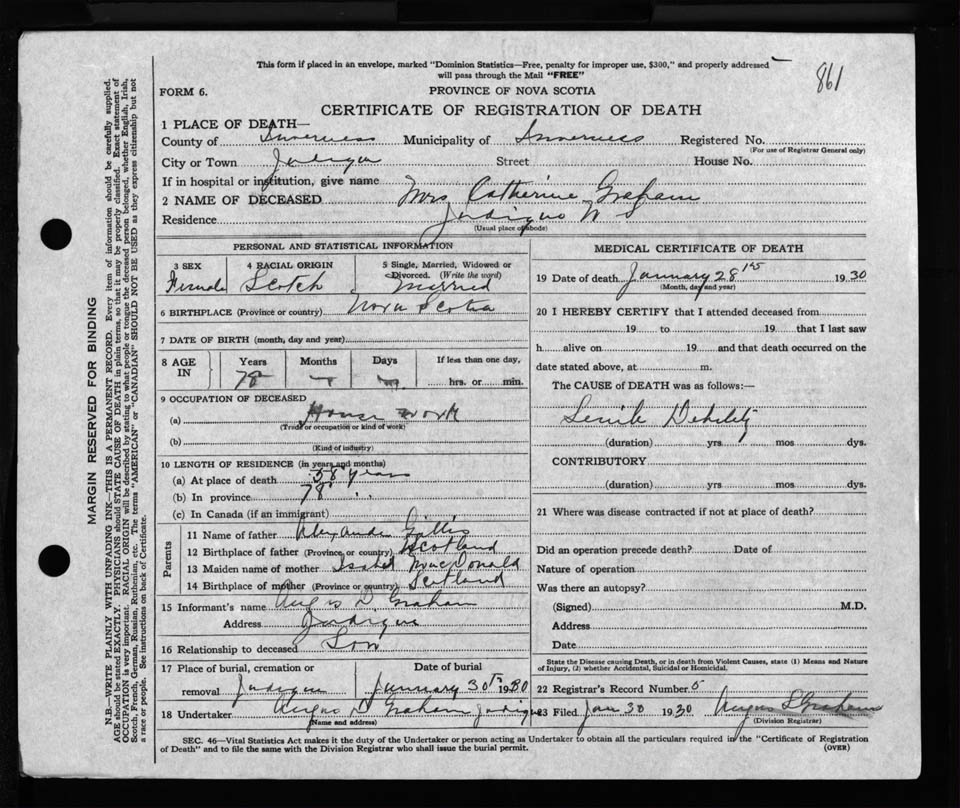 This form if placed in an envelope, marked "Dominion Statistics—Free, penalty for improper use, $300," and properly addressed
will pass through the Mail "FREE"
861
FORM 6.
PROVINCE OF NOVA SCOTIA
CERTIFICATE OF REGISTRATION OF DEATH
1 PLACE OF DEATH—
County of Inverness Municipality of Inverness Registered No.
(For use of Registrar General only)
City or Town Judique Street House No.
If in hospital or institution, give name
2 NAME OF DECEASED Mrs Catherine Graham
Residence Judique N S
(Usual place of abode)
PERSONAL AND STATISTICAL INFORMATION
3 SEX 4 RACIAL ORIGIN 5 Single, Married, Widowed or
Divorced. (Write the word)
Female Scotch Married
6 BIRTHPLACE (Province or country) Nova Scotia
7 DATE OF BIRTH (month, day and year)
8 AGE IN Years Months Days If less than one day,
78 — hrs. or min.
9 OCCUPATION OF DECEASED
(a) House work
(Trade or occupation or kind of work)
(b)
(Kind of industry)
10 LENGTH OF RESIDENCE (in years and months)
(a) At place of death 58 years
(b) In province 78 "
(c) In Canada (if an immigrant)
Parents
11 Name of father Alexander Gillis
12 Birthplace of father (Province or country) Scotland
13 Maiden name of mother Isabel MacDonald
14 Birthplace of mother (Province or country) Scotland
15 Informant's name Angus D. Graham
Address Judique
16 Relationship to deceased Son
17 Place of burial, cremation or Date of burial
removal Judique January 30th 1930
18 Undertaker Angus D Graham Judique
(Name and address)
MEDICAL CERTIFICATE OF DEATH
19 Date of death January 28 1930
(Month, day and year)
20 I HEREBY CERTIFY that I attended deceased from
19 to 19 that I last saw
h alive on 19 and that death occurred on the
date stated above, at m.
The CAUSE of DEATH was as follows:—
Senile Debility
(duration) yrs mos dys.
CONTRIBUTORY
(duration) yrs. mos. dys.
21 Where was disease contracted if not at place of death?
Did an operation precede death? Date of
Nature of operation
Was there an autopsy?
(Signed) M.D.
Address
Date
State the Disease causing Death, or in death from Violent Causes, state (1) Means and Nature
of Injury, (2) whether Accidental, Suicidal or Homicidal.
22 Registrar's Record Number 5
23 Filed Jan 30 1930 Angus L Graham
(Division Registrar)
SEC. 46—Vital Statistics Act makes it the duty of the Undertaker or person acting as Undertaker to obtain all the particulars required in the "Certificate of Registration
of Death" and to file the same with the Division Registrar who shall issue the burial permit. (OVER)
MARGIN RESERVED FOR BINDING
N.B.—WRITE PLAINLY WITH UNFADING INK—THIS IS A PERMANENT RECORD. Every item of information should be carefully supplied.
AGE should be stated EXACTLY. PHYSICIANS should STATE CAUSE OF DEATH in plain terms, so that it may be properly classified. Exact statement of
OCCUPATION is very important. RACIAL ORIGIN will be described by stating to what people or tongue the deceased person belonged, whether English, Irish,
Scotch, French, German, Russian, Ruthenian, etc. The terms "AMERICAN" or "CANADIAN" SHOULD NOT BE USED as they express citizenship but not
a race or people. See instructions on back of Certificate.